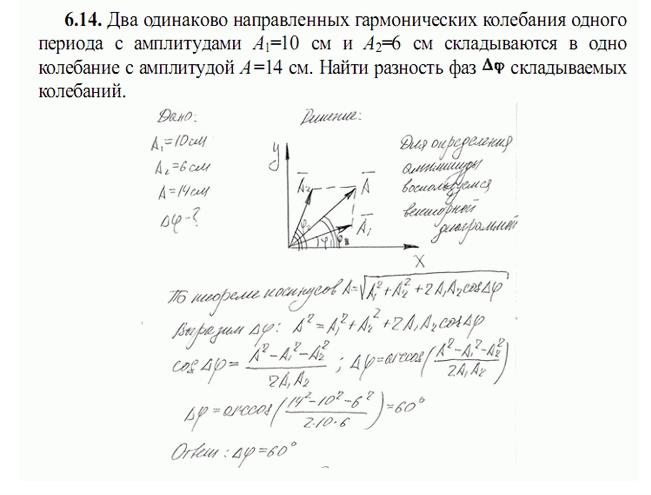 6.14. Два одинаково направленных гармонических колебания одного
периода с амплитудами A₁=10 см и A₂=6 см складываются в одно
колебание с амплитудой A=14 см. Найти разность фаз Δφ складываемых
колебаний.
Дано:
A₁=10см
A₂=6см
A=14см
Δφ-?
Решение:
y
A̅₂
A̅
A̅₁
φ₂
φ
φ₁
x
Для определения
амплитуды
воспользуемся
векторной
диаграммой
По теореме косинусов A=√(A₁²+A₂²+2A₁A₂cosΔφ)
Выразим Δφ: A²=A₁²+A₂²+2A₁A₂cosΔφ
cosΔφ=(A²-A₁²-A₂²)/(2A₁A₂); Δφ=arccos((A²-A₁²-A₂²)/(2A₁A₂))
Δφ=arccos((14²-10²-6²)/(2·10·6))=60°
Ответ: Δφ=60°